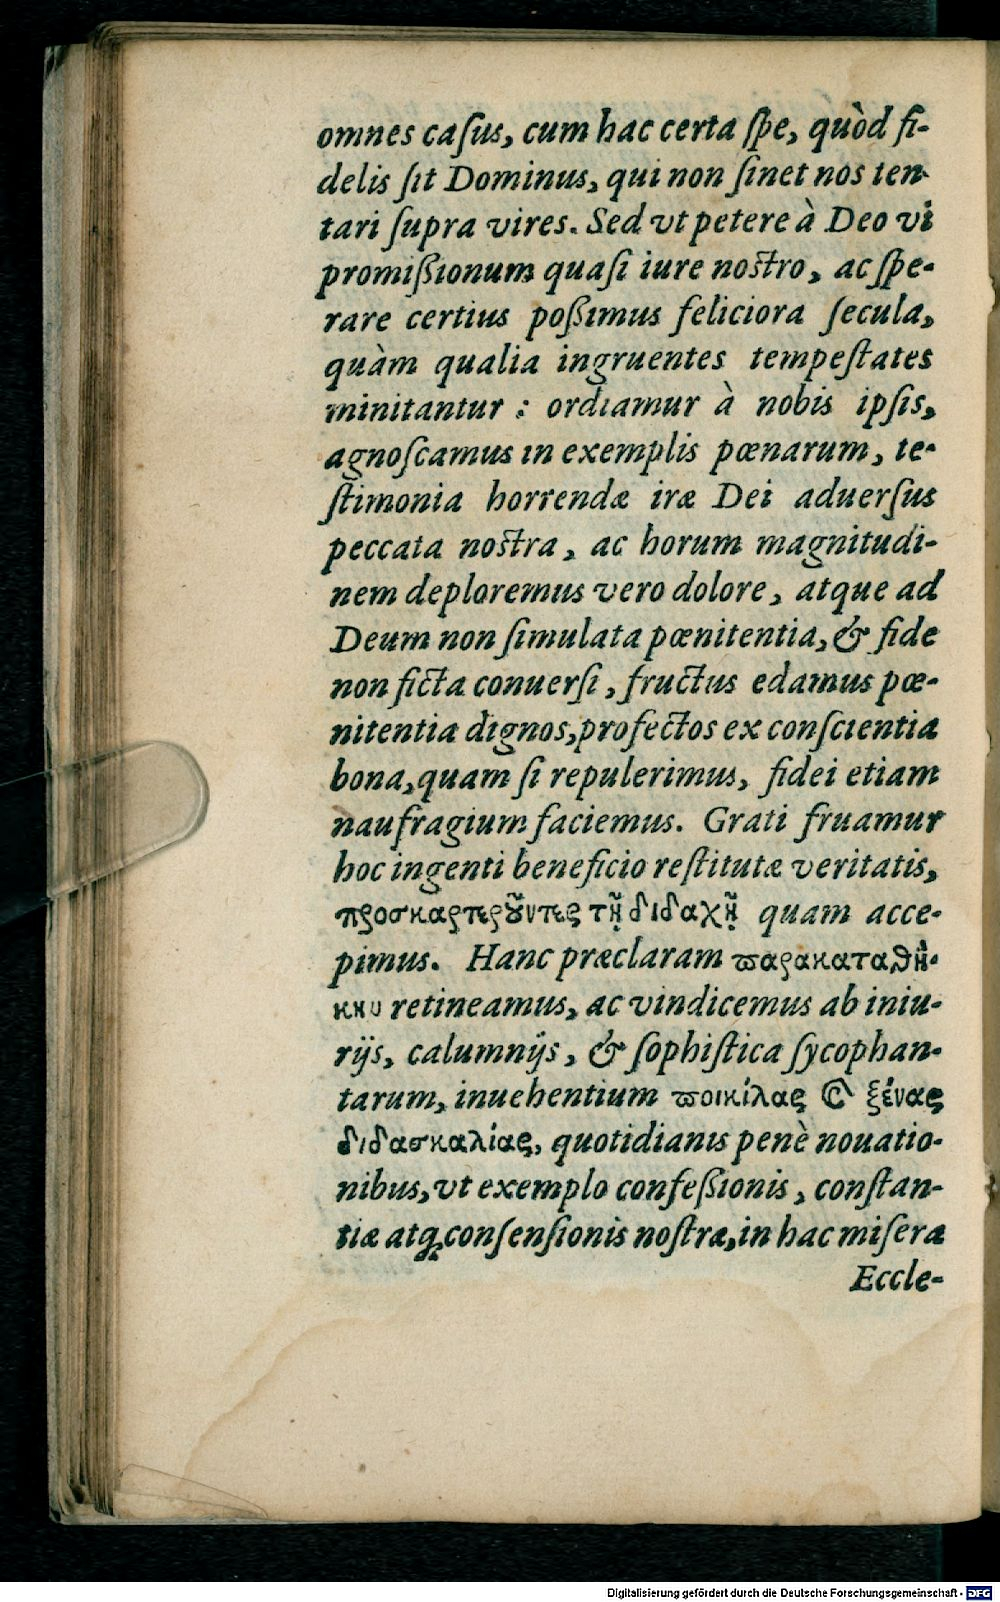 omnes caſus, cum hac certa ſpe, quòd fi-
delis ſit Dominus, qui non ſinet nos ten-
tari ſupra vires. Sed vt petere à Deo vi
promißionum quaſi iure noſtro, ac ſpe-
rare certius poßimus feliciora ſecula,
quàm qualia ingruentes tempeſtates
minitantur : ordiamur à nobis ipſis,
agnoſcamus in exemplis pœnarum, te-
ſtimonia horrendæ iræ Dei aduerſus
peccata noſtra, ac horum magnitudi-
nem deploremus vero dolore, atque ad
Deum non ſimulata pœnitentia, & fide
non ficta conuerſi, fructus edamus pœ-
nitentia dignos, profectos ex conſcientia
bona, quam ſi repulerimus, fidei etiam
naufragium faciemus. Grati fruamur
hoc ingenti beneficio reſtitutæ veritatis,
προσκαρτεροῦντες τῇ διδαχῇ quam acce-
pimus. Hanc præclaram παρακαταθή-
κην retineamus, ac vindicemus ab iniu-
rijs, calumnijs, & ſophiſtica ſycophan-
tarum, inuehentium ποικίλας καὶ ξένας
διδασκαλίας, quotidianis penè nouatio-
nibus, vt exemplo confeßionis, conſtan-
tiæ atq; conſenſionis noſtræ, in hac miſera
Eccle-
Digitalisierung gefördert durch die Deutsche Forschungsgemeinschaft - DFG